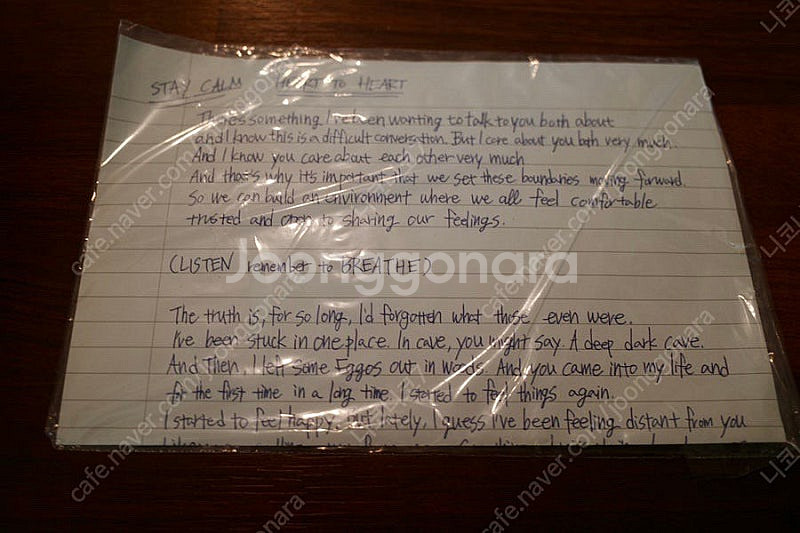 STAY CALM HEART TO HEART
There's something I've been wanting to talk to you both about
and I know this is a difficult conversation. But I care about you both very much.
And I know you care about each other very much
And that's why it's important that we set these boundaries moving forward.
So we can build an environment where we all feel comfortable
trusted and open to sharing our feelings.
(LISTEN remember to BREATHE)
The truth is, for so long, I'd forgotten what those even were.
I've been stuck in one place. In cave, you might say. A deep dark cave.
And Then, I left some Eggos out in woods. And you came into my life and
for the first time in a long time. I started to feel things again.
I started to feel happy. but lately, I guess I've been feeling distant from you
Joonggonara
cafe.naver.com/joonggonara